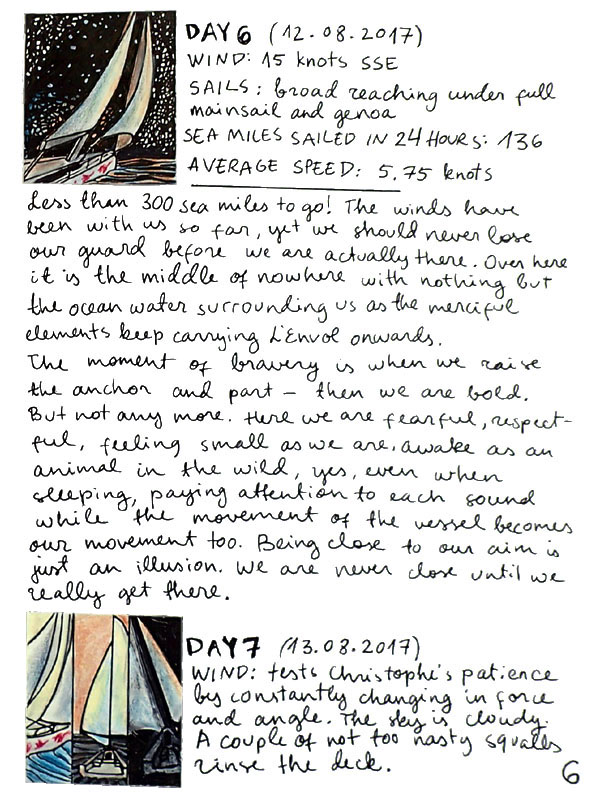 DAY 6 (12.08.2017)
WIND: 15 knots SSE
SAILS: broad reaching under full
mainsail and genoa
SEA MILES SAILED IN 24 HOURS: 136
AVERAGE SPEED: 5.75 knots
Less than 300 sea miles to go! The winds have
been with us so far, yet we should never lose
our guard before we are actually there. Over here
it is the middle of nowhere with nothing but
the ocean water surrounding us as the merciful
elements keep carrying L'Envol onwards.
The moment of bravery is when we raise
the anchor and part – then we are bold.
But not any more. Here we are fearful, respect-
ful, feeling small as we are, awake as an
animal in the wild, yes, even when
sleeping, paying attention to each sound
while the movement of the vessel becomes
our movement too. Being close to our aim is
just an illusion. We are never close until we
really get there.
DAY 7 (13.08.2017)
WIND: tests Christophe's patience
by constantly changing in force
and angle. The sky is cloudy.
A couple of not too nasty squalls
rinse the deck.
6